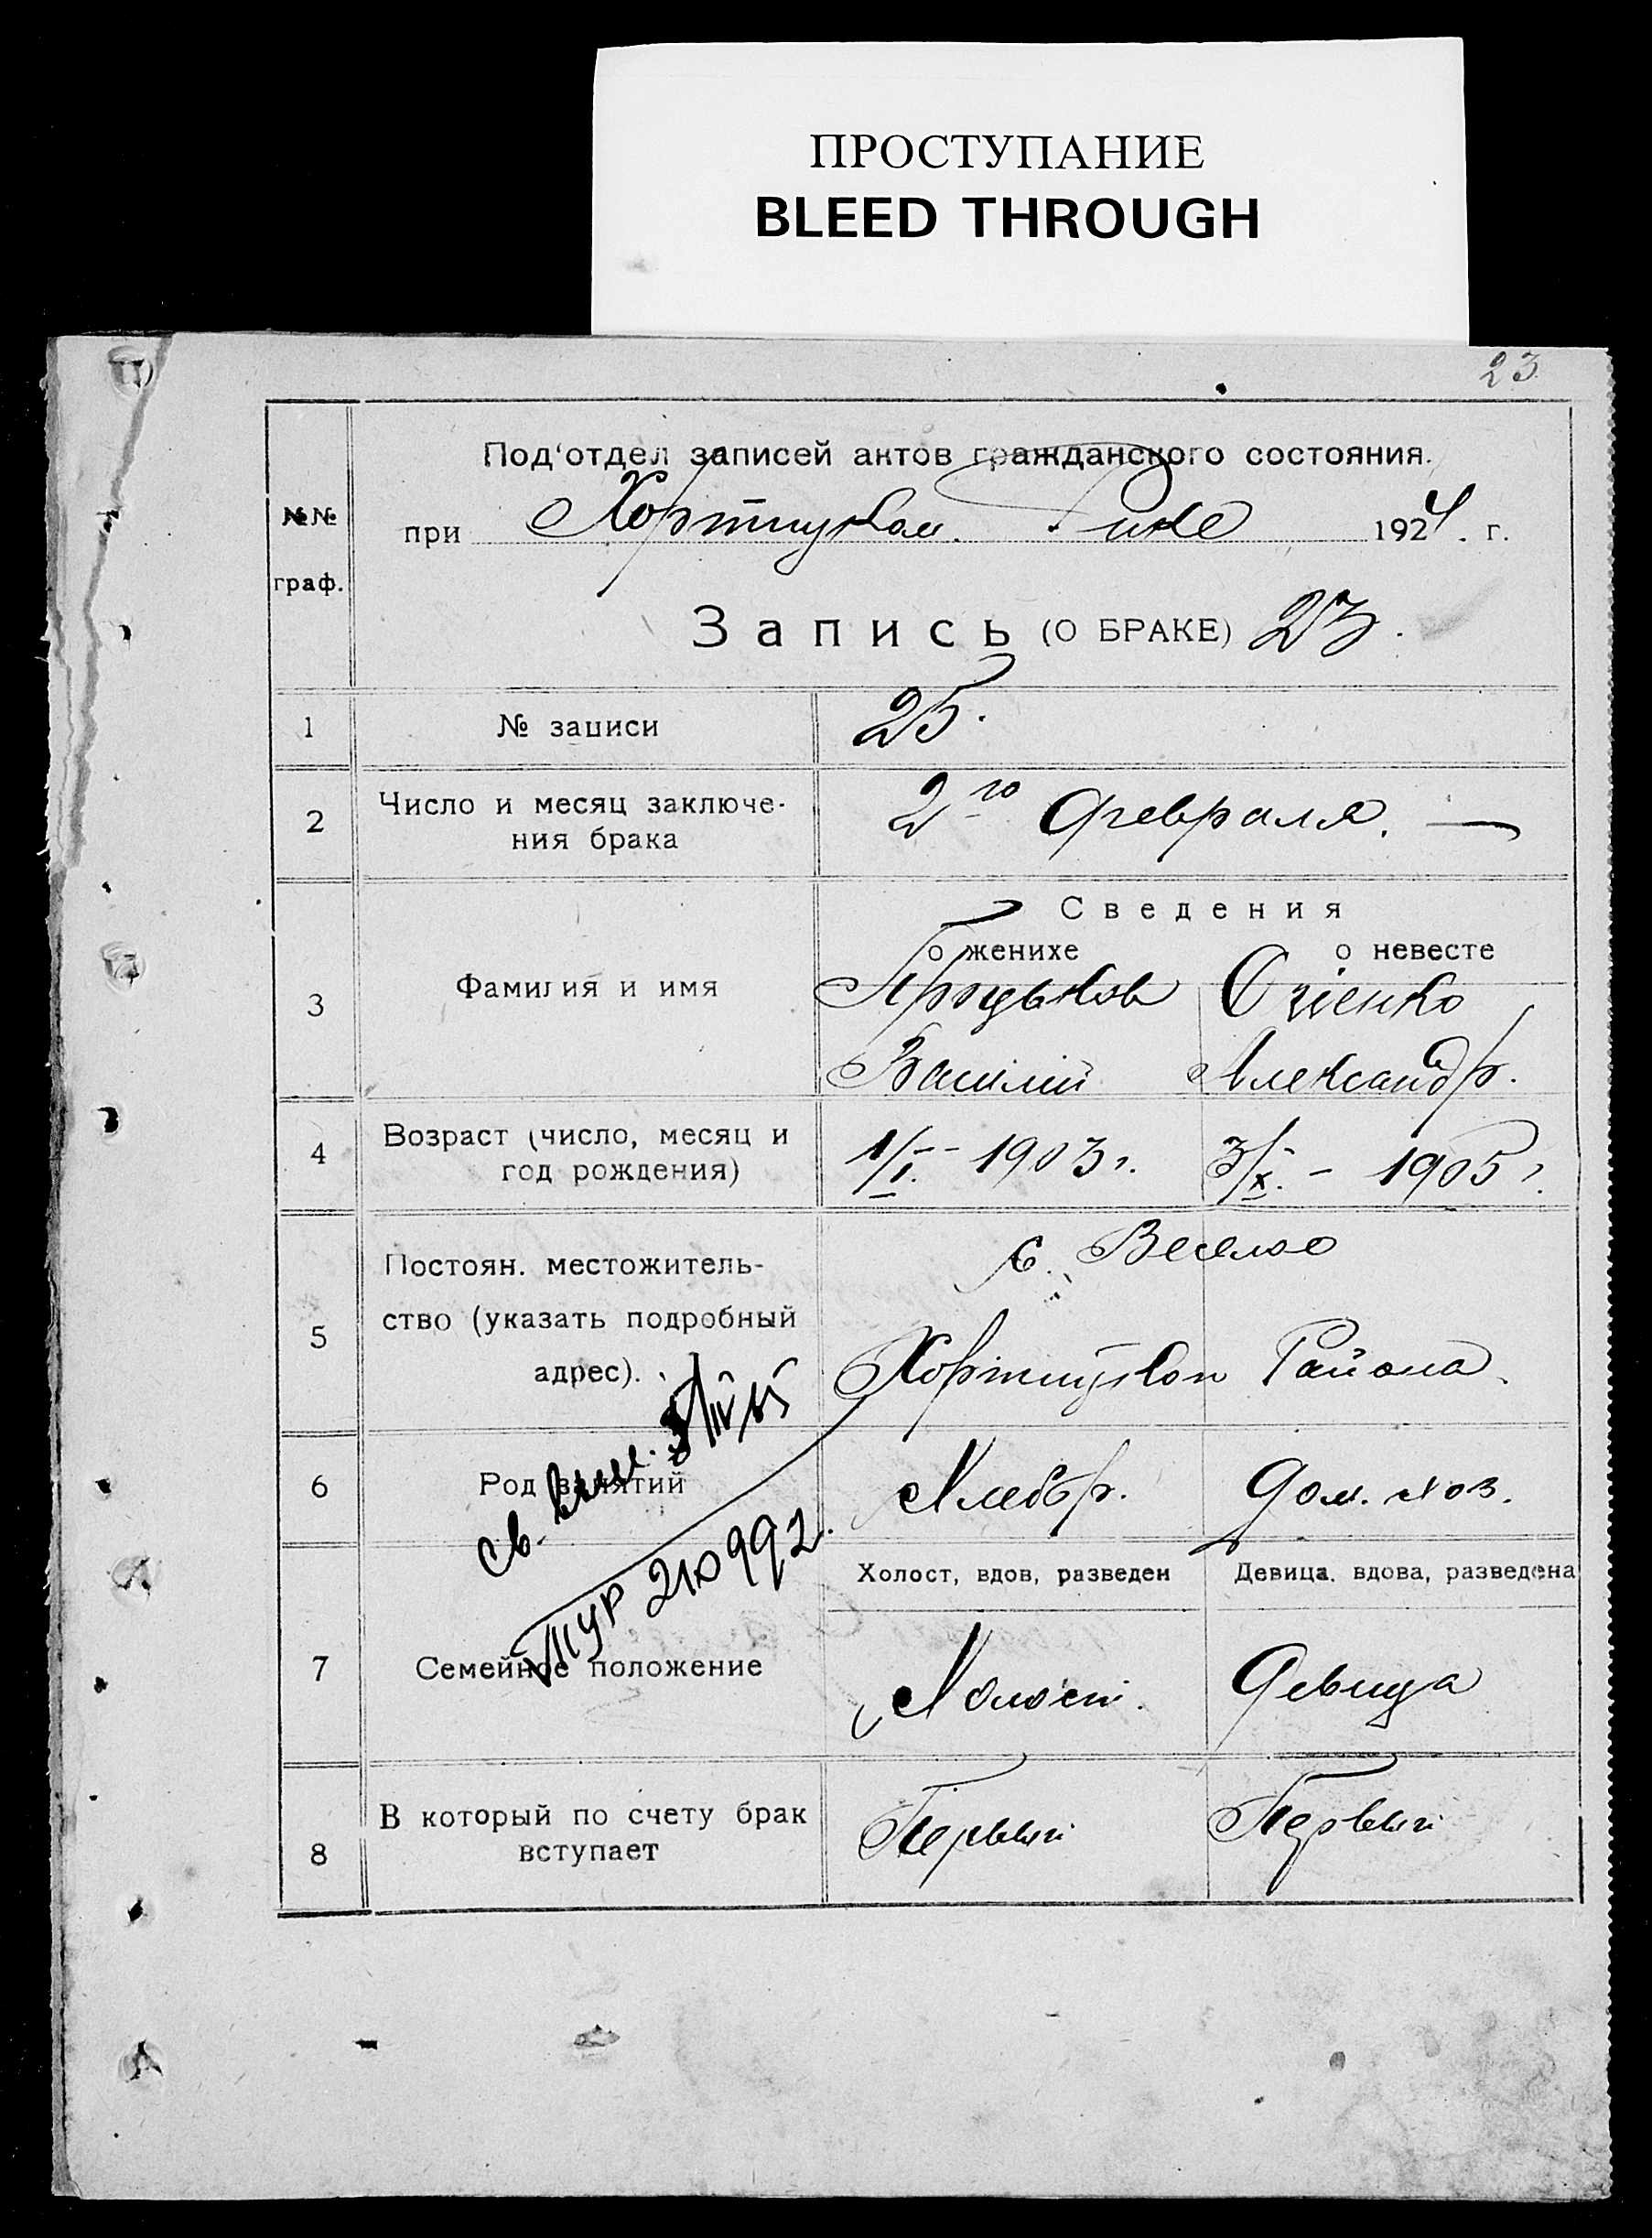 ПРОСТУПАНИЕ
BLEED THROUGH
23
Под'отдел записей актов гражданского состояния.
№№ граф.
при Хортицком Рике 1924. г.
Запись (О БРАКЕ) 23.
1 № записи 25.
2 Число и месяц заключе-
ния брака 2го Февраля. —
Сведения
о женихе о невесте
3 Фамилия и имя
Василий Александр.
4 Возраст (число, месяц и
год рождения) 1/I - 1903 г. 3/X. - 1905 г.
с. Веселое
5 Постоян. местожитель-
ство (указать подробный
адрес).
Хортицкой Района.
6 Род занятий Хлебор. Дом. хоз.
св. 
ТУР 210992.
Холост, вдов, разведен Девица, вдова, разведена
7 Семейное положение Холост. Девица
8 В который по счету брак
вступает Первый Первый